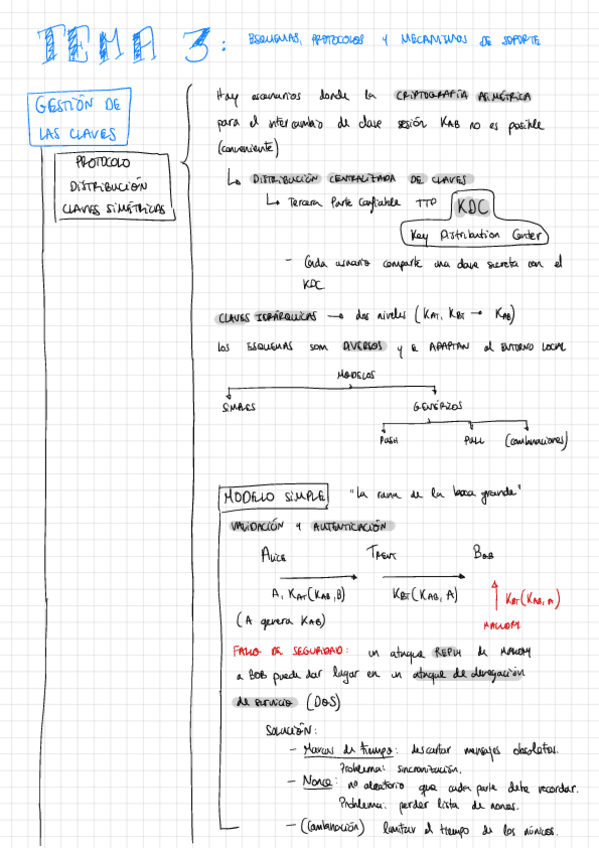 TEMA 3: ESQUEMAS, PROTOCOLOS Y MECANISMOS DE SOPORTE
GESTIÓN DE
LAS CLAVES
PROTOCOLO
DISTRIBUCIÓN
CLAVES SIMÉTRICAS
Hay escenarios donde la CRIPTOGRAFÍA ASIMÉTRICA
para el intercambio de clave sesión KAB no es posible
(conveniente)
↳ DISTRIBUCIÓN CENTRALIZADA DE CLAVES
↳ Tercera Parte Confiable TTP KDC
Key Distribution Center
- Cada usuario comparte una clave secreta con el
KDC
CLAVES JERÁRQUICAS → dos niveles (KAT, KBT → KAB)
LOS ESQUEMAS SON DIVERSOS y se ADAPTAN al ENTORNO LOCAL
MODELOS
SIMPLES GENÉRICOS
PUSH PULL (combinaciones)
MODELO SIMPLE "la rana de la boca grande"
VALIDACIÓN Y AUTENTICACIÓN
ALICE TRENT BOB
A, KAT(KAB, B) KBT(KAB, A) KBT(KAB, A)
(A genera KAB) MALLORY
FALLO DE SEGURIDAD: un ataque REPLY de MALLORY
a BOB puede dar lugar en un ataque de denegación
de servicio (DOS)
SOLUCIÓN:
- Marcas de tiempo: descartar mensajes obsoletos.
Problema: sincronización.
- Nonce: nº aleatorio que cada parte debe recordar.
Problema: perder lista de nonces.
- (Combinación) limitar el tiempo de los núnicos.